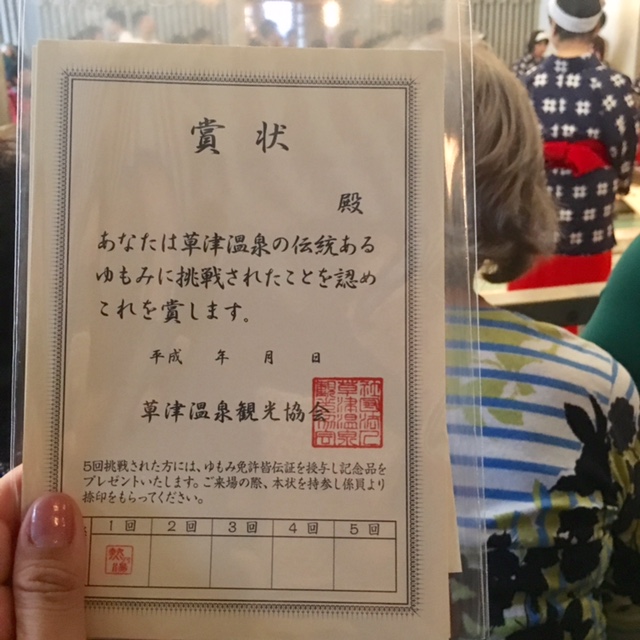 賞状
殿
あなたは草津温泉の伝統ある
ゆもみに挑戦されたことを認め
これを賞します。
平成 年 月 日
草津温泉観光協会
5回挑戦された方には、ゆもみ免許皆伝証を授与し記念品を
プレゼントいたします。ご来場の際、本状を持参し係員より
捺印をもらってください。
1回 2回 3回 4回 5回